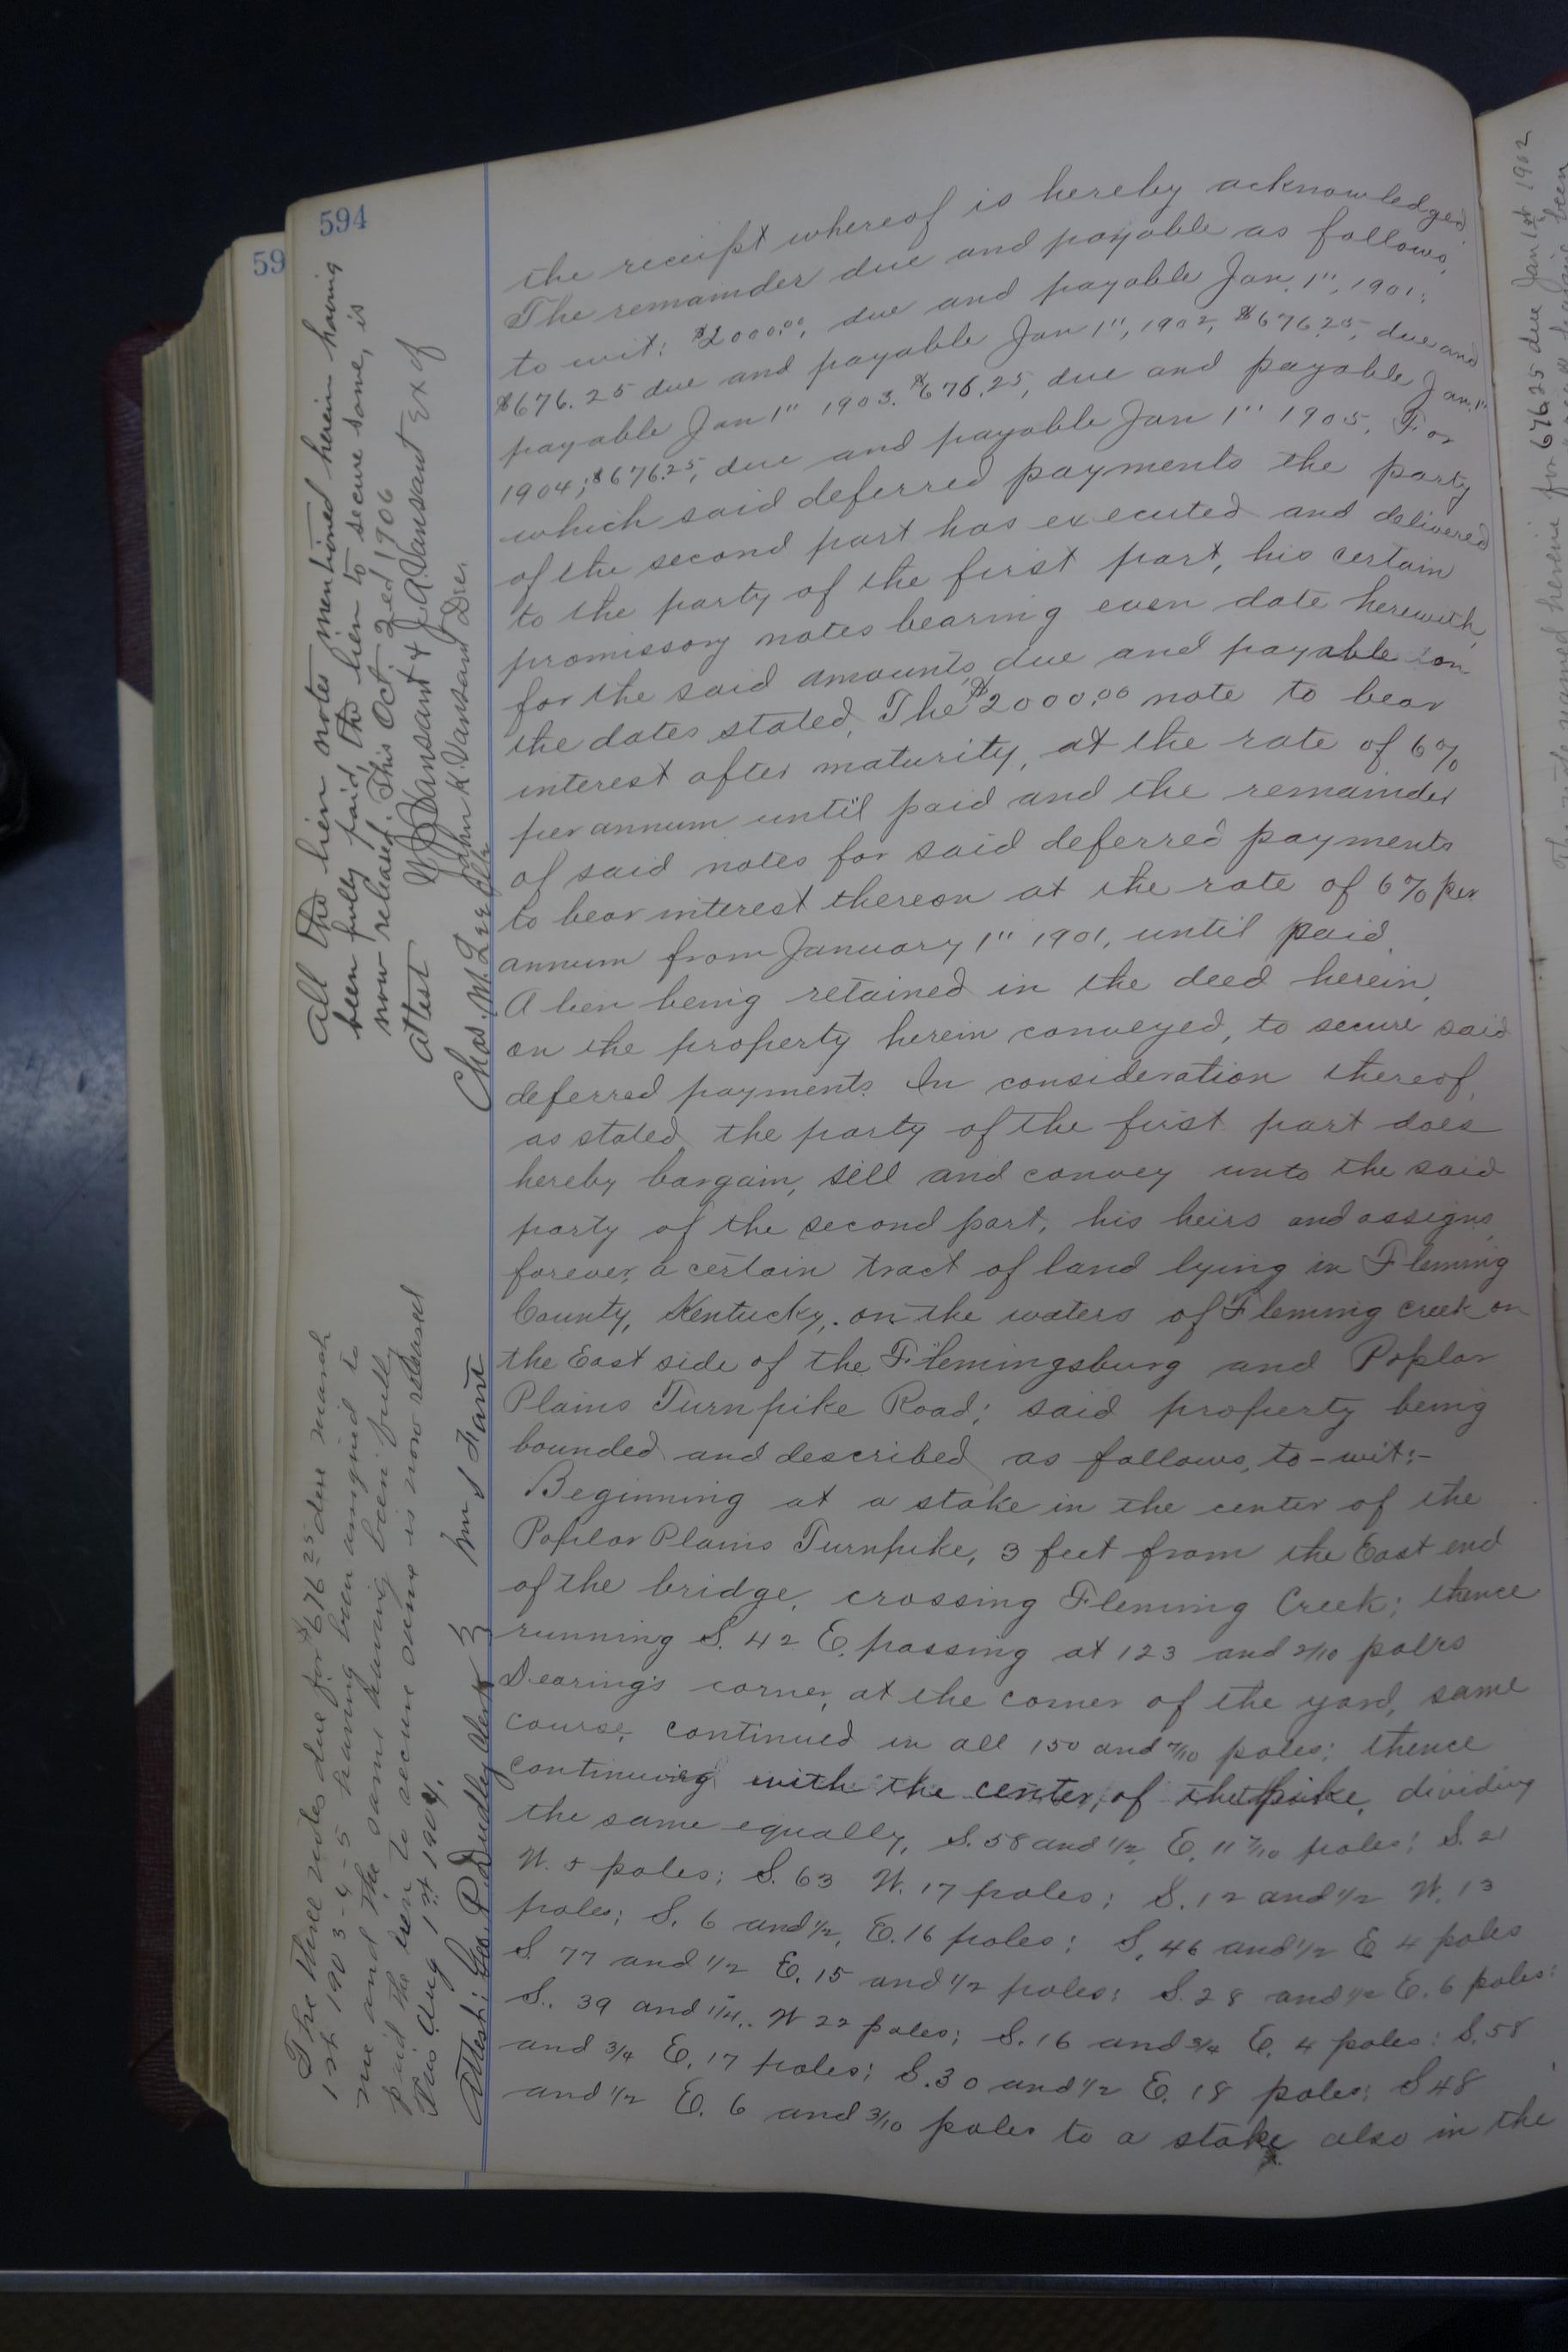 594
59
the receipt whereof is hereby acknowledged
The remainder due and payable as follows,
to wit: $2000.00, due and payable Jan. 1", 1901;
$676.25 due and payable Jan 1", 1902, $676.25, due and
payable Jan 1" 1903. $676.25, due and payable Jan. 1"
1904; $676.25, due and payable Jan 1" 1905. For
which said deferred payments the party
of the second part has executed and delivered
to the party of the first part, his certain
promissory notes bearing even date herewith,
for the said amounts, due and payable on
the dates stated, The $2000.00 note to bear
interest after maturity, at the rate of 6%
per annum until paid and the remainder
of said notes for said deferred payments
to bear interest thereon at the rate of 6% per
annum from January 1" 1901, until paid.
A lien being retained in the deed herein,
on the property herein conveyed, to secure said
deferred payments. In consideration thereof,
as stated, the party of the first part does
hereby bargain, sell and convey unto the said
party of the second part, his heirs and assigns,
forever, a certain tract of land lying in Fleming
County, Kentucky, on the waters of Fleming creek on
the East side of the Flemingsburg and Poplar
Plains Turnpike Road; said property being
bounded and described as follows, to-wit:-
Beginning at a stake in the center of the
Poplar Plains Turnpike, 3 feet from the East end
of the bridge, crossing Fleming Creek; thence
running S. 42 E. passing at 123 and 2/10 poles
Dearing's corner, at the corner of the yard, same
course, continued in all 150 and 7/10 poles; thence
continuing with the center, of the pike, dividing
the same equally, S. 58 and 1/2, E. 11 7/10 poles; S. 21
W. 5 poles; S. 63 W. 17 poles; S. 12 and 1/2 W. 13
poles; S. 6 and 1/2, E. 16 poles; S. 46 and 1/2 E 4 poles
S. 77 and 1/2 E. 15 and 1/2 poles; S. 28 and 1/2 E. 6 poles;
S. 39 and 1/4, W 22 poles; S. 16 and 3/4 E. 4 poles; S. 58
and 3/4 E. 17 poles; S. 30 and 1/2 E. 18 poles; S 48
and 1/2 E. 6 and 3/10 poles to a stake also in the
All the lien notes mentioned herein having
been fully paid, the lien to secure same, is
now released. This Oct. 2ed 1906
Attest W J Vansant & J. A. Vansant Ex of
John K Vansant Dec.
Chas. M. Lee Clk
The three notes due for $676.25 due march
1st 1903-4-5 having been assigned to
me and the same having been fully
paid the lien to secure same is now released
This Aug 1st 1904.
Attest: Geo. P. Dudley Clerk } Wm S Fant
676.25 due Jan 1st 1902